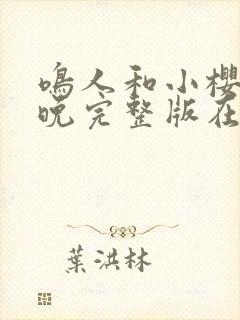 鳴人和小櫻
晚完整版在
葉洪林